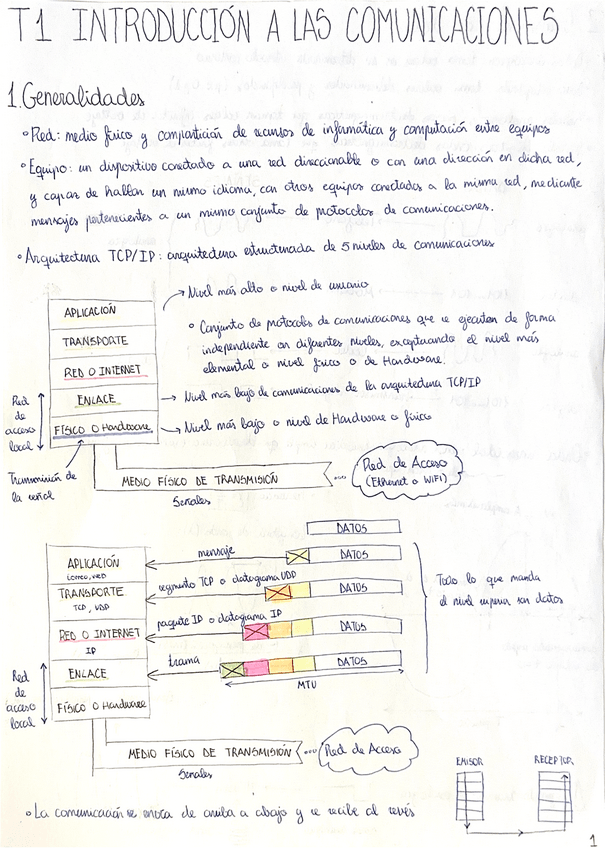 T1 INTRODUCCIÓN A LAS COMUNICACIONES
1. Generalidades
° Red: medio físico y compartición de recursos de informática y computación entre equipos
° Equipo: un dispositivo conectado a una red direccionable o con una dirección en dicha red,
y capaz de hablar un mismo idioma, con otros equipos conectados a la misma red, mediante
mensajes pertenecientes a un mismo conjunto de protocolos de comunicaciones.
° Arquitectura TCP/IP: arquitectura estructurada de 5 niveles de comunicaciones
APLICACIÓN
TRANSPORTE
RED O INTERNET
ENLACE
FÍSICO O Hardware
Red
de
acceso
local
Transmisión de
la señal
Nivel más alto o nivel de usuario
° Conjunto de protocolos de comunicaciones que se ejecutan de forma
independiente en diferentes niveles, exceptuando el nivel más
elemental o nivel físico o de Hardware.
Nivel más bajo de comunicaciones de la arquitectura TCP/IP
Nivel más bajo o nivel de Hardware o físico
MEDIO FÍSICO DE TRANSMISIÓN
Señales
Red de Acceso
(Ethernet o WiFi)
DATOS
APLICACIÓN
correo, web
mensaje
DATOS
TRANSPORTE
TCP, UDP
segmento TCP o datagrama UDP
DATOS
RED O INTERNET
IP
paquete IP o datagrama IP
DATOS
ENLACE
trama
DATOS
MTU
FÍSICO O Hardware
Red
de
acceso
local
Todo lo que manda
el nivel superior son datos
MEDIO FÍSICO DE TRANSMISIÓN
Señales
Red de Acceso
EMISOR
RECEPTOR
° La comunicación se enoca de arriba a abajo y se recibe al revés
1